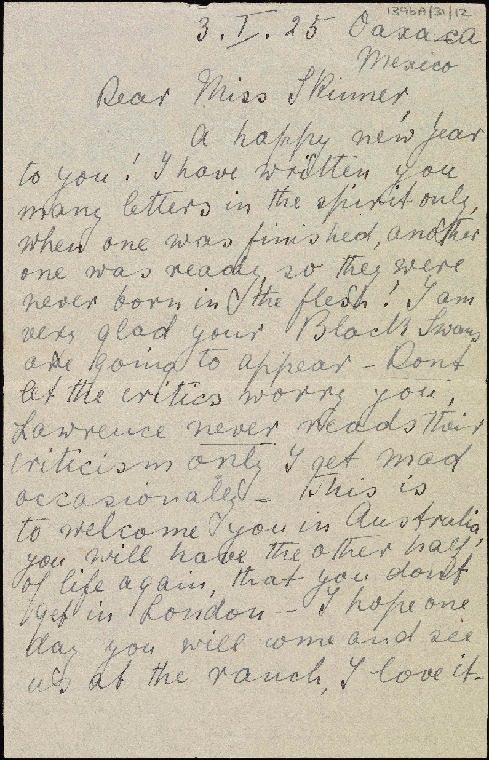 1396A/31/12
3. I. 25 Oaxaca
Mexico
Dear Miss Skinner,
A happy new year
to you! I have written you
many letters in the spirit only,
when one was finished, another
one was ready, so they were
never born in the flesh! I am
very glad your Black Swans
are going to appear - Dont
let the critics worry you,
Lawrence never reads their
criticism only I get mad
occasionally - This is
to welcome you in Australia,
you will have the other half
of life again, that you dont
get in London - I hope one
day you will come and see
us at the ranch, I love it -